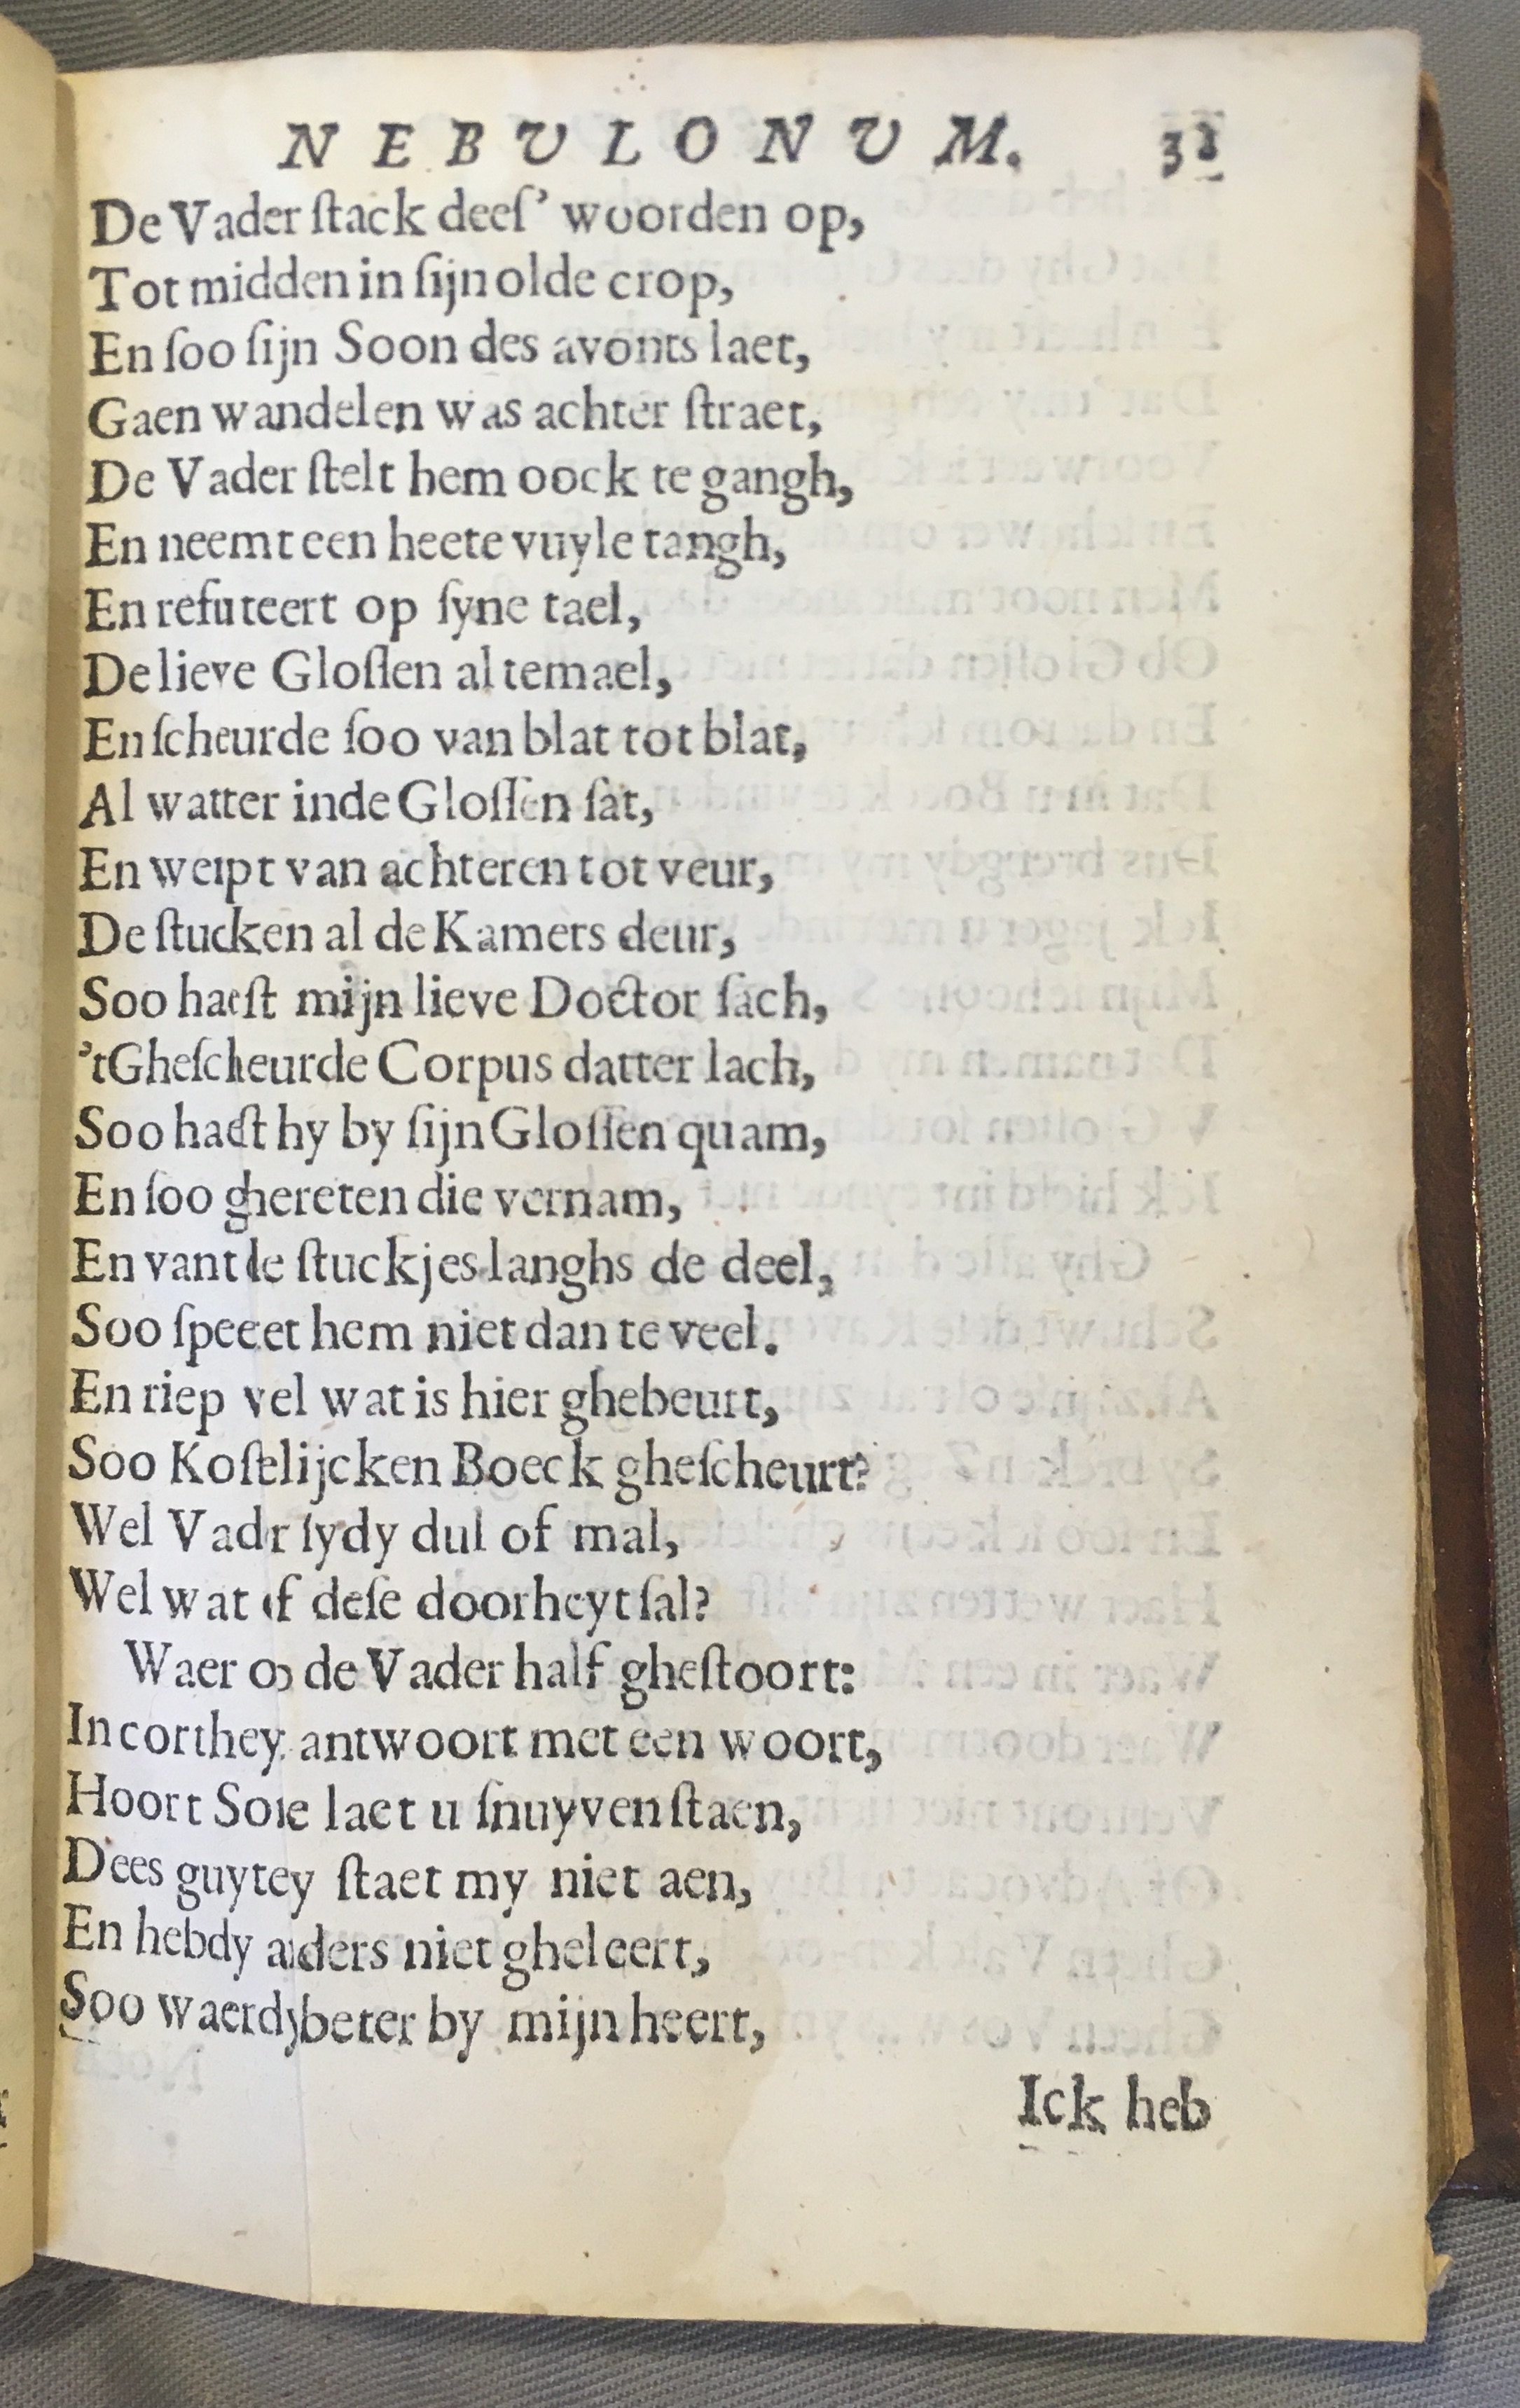 NEBULONUM. 31
De Vader ſtack deeſ’ woorden op,
Tot midden in ſijn olde crop,
En ſoo ſijn Soon des avonts laet,
Gaen wandelen was achter ſtraet,
De Vader ſtelt hem oock te gangh,
En neemt een heete vuyle tangh,
En refuteert op ſyne tael,
De lieve Gloſſen al temael,
En ſcheurde ſoo van blat tot blat,
Al watter inde Gloſſen ſat,
En weipt van achteren tot veur,
De ſtucken al de Kamers deur,
Soo haeſt mijn lieve Doctor ſach,
’tGheſcheurde Corpus datter lach,
Soo haeſt hy by ſijn Gloſſen quam,
En ſoo ghereten die vernam,
En vant de ſtuckjes langhs de deel,
Soo ſpeeet hem niet dan te veel.
En riep vel wat is hier ghebeurt,
Soo Koſtelijcken Boeck gheſcheurt?
Wel Vadr ſydy dul of mal,
Wel wat of deſe doorheyt ſal?
Waer op de Vader half gheſtoort:
In corthey antwoort met een woort,
Hoort Sone laet u ſnuyven ſtaen,
Dees guytey ſtaet my niet aen,
En hebdy anders niet gheleert,
Soo waerdy beter by mijn heert,
Ick heb